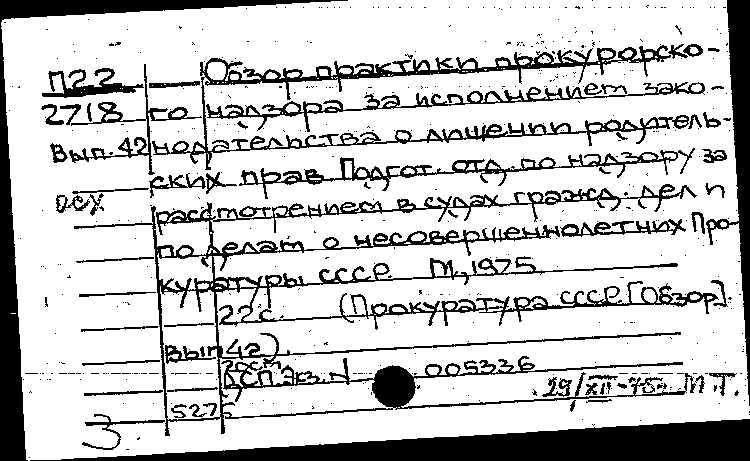 П22 Обзор практики прокурорско-
2718 го надзора за исполнением зако-
Вып. 42 нодательства о лишении родитель-
ских прав Подгот. отд. по надзору за
рассмотрением в судах гражд. дел и
по делам о несовершеннолетних Про-
куратуры СССР. М., 1975
22 с. (Прокуратура СССР. [Обзор].
Вып 42).
ДСП. Экз. N 005336
29/XII-75г. М.Т.
5275
3